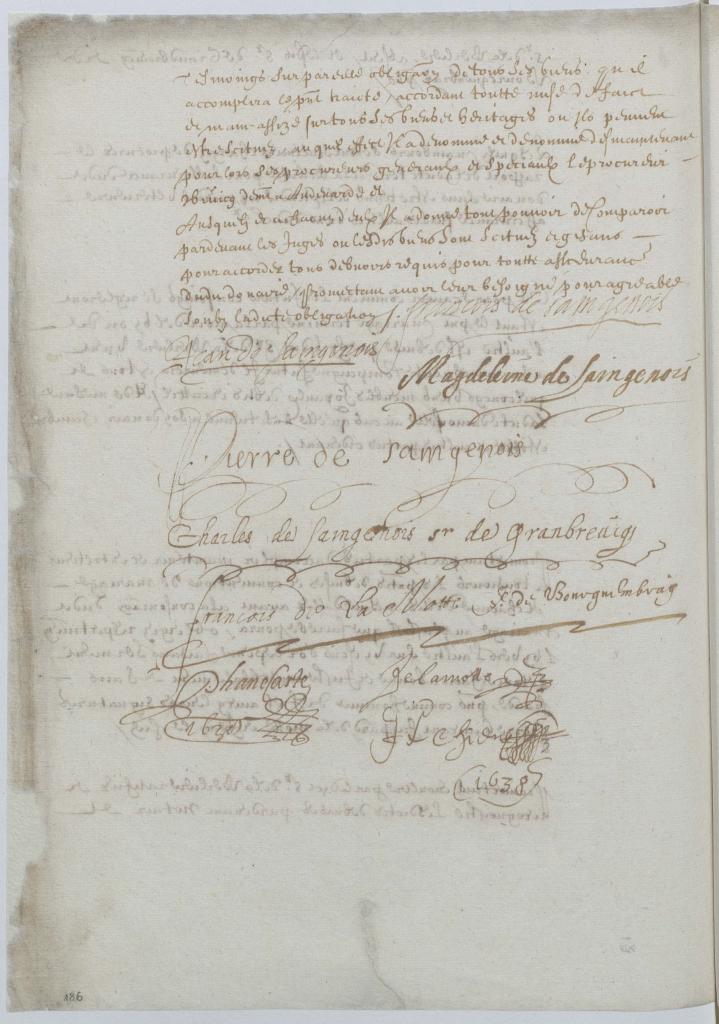 Tesmoings sur pareille obligaon de tous ses biens qu'il
accomplira le pnt traicté, accordant toutte mise de faict
et main assize sur tous ses biens et heritages ou ilz peuvent
estre scituez, au quel effect Il a denommé et denomme des maintenant
pour lors ses procureurs generaulx et especiaulx le procureur
Audenarde et
Ausquelz et a chacun d'eulx Il a donné tout pouvoir de Comparoir
pardevant les Juges ou lesdis biens sont scituez et gisans
pour accorder tous debvoirs requis pour toutte asseurance
dudit douaire, promectant avoir leur besoigné pour agreable
soubz ladicte obligation
François de Saingenois
Jean de Saingenois
Magdeleine de Saingenois
Pierre de Saingenois
Charles de Saingenois sr de Granbreucq
Francois de La Motte Sr de Bourguembray
Phanecarte
Delamotte
1638
1638